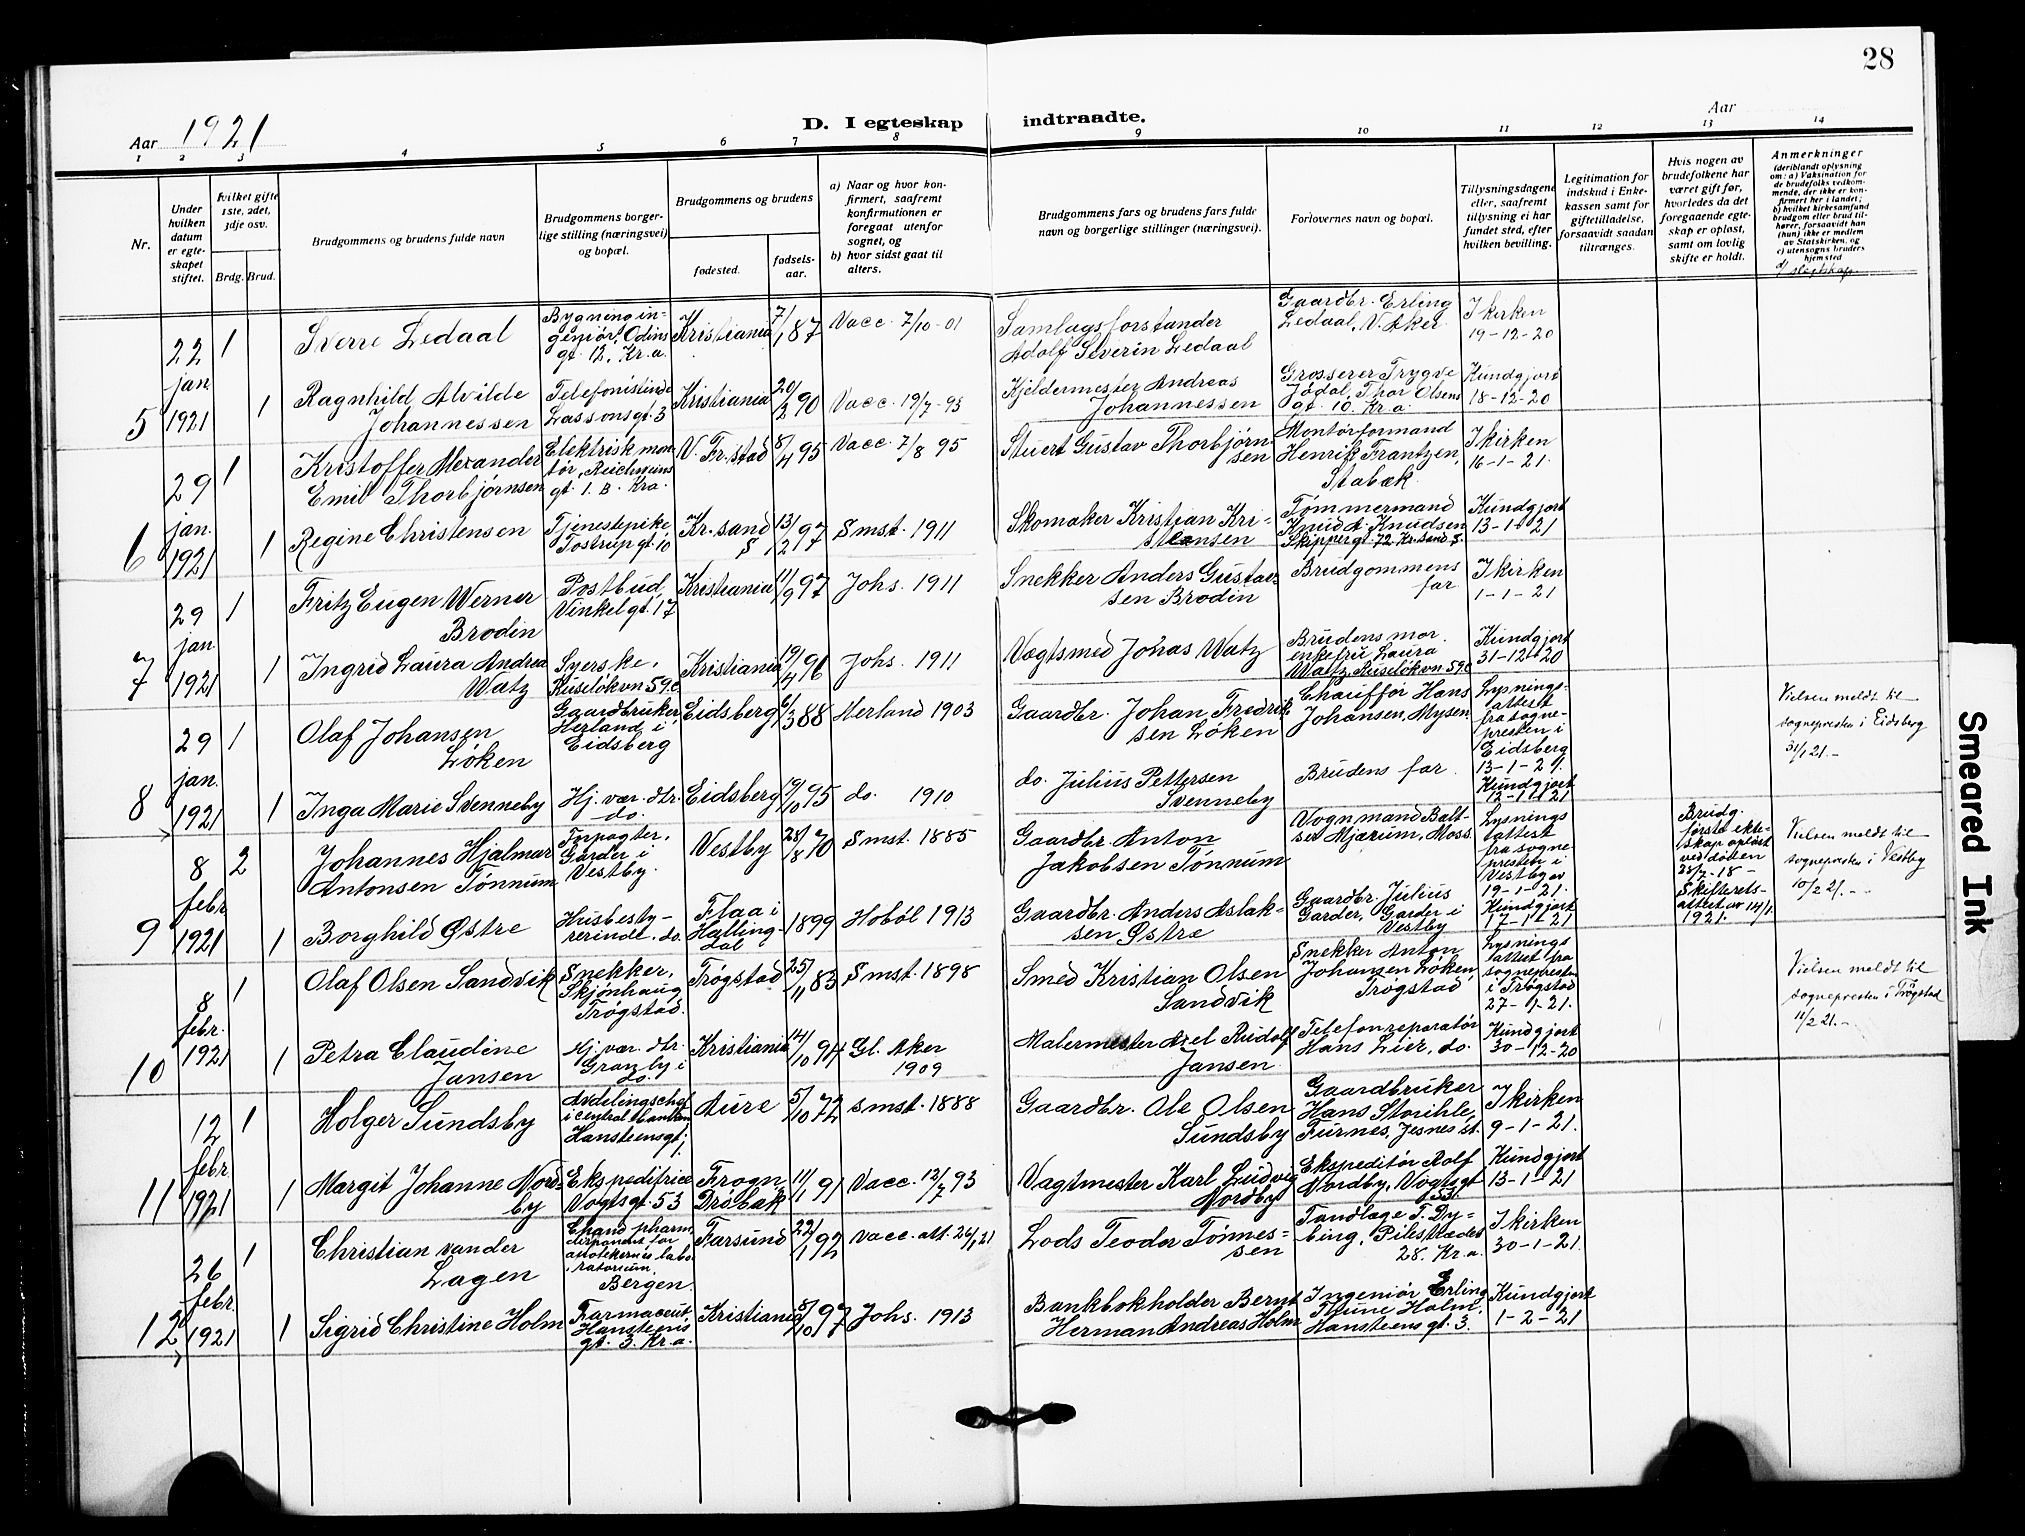 28
Aar 1921
D. I egteskap indtraadte.
Aar
1 2 3 4 5 6 7 8 9 10 11 12 13 14
Nr.
Under hvilken datum er egteskapet stiftet.
Hvilket gifte 1ste, 2det, 3dje osv.
Brdg. Brud.
Brudgommens og brudens fulde navn
Brudgommens borgerlige stilling (næringsvei) og bopæl.
Brudgommens og brudens
fødested.
fødselsaar.
a) Naar og hvor konfirmert, saafremt konfirmationen er foregaat utenfor sognet, og
b) hvor sidst gaat til alters.
Brudgommens fars og brudens fars fulde navn og borgerlige stillinger (næringsvei).
Forlovernes navn og bopæl.
Tillysningsdagene eller, saafremt tillysning ei har fundet sted, efter hvilken bevilling.
Legitimation for indskud i Enkekassen samt for giftetilladelse, forsaavidt saadan tiltrænges.
Hvis nogen av brudefolkene har været gift før, hvorledes da det foregaaende egteskap er opløst, samt om lovlig skifte er holdt.
Anmerkninger
(deriblandt oplysning om: a) Vaksination for de brudefolks vedkommende, der ikke er konfirmert her i landet; b) hvilket kirkesamfund brudgom eller brud tilhører, forsaavidt han (hun) ikke er medlem av Statskirken, og c) utensogns bruders hjemsted
d) slegtskap
5
22 jan 1921
1
Sverre Ledaal
Bygningingeniør, Odins gt. 12, Kr.a.
Kristiania
7/1 87
Vacc. 7/10-01
Samlagsforstander Adolf Severin Ledaal
Gaardbr. Erling Ledaal, V. Aker.
I kirken 19-12-20
1
Ragnhild Alvilde Johannessen
Telefonistinde Lassonsgt. 3
Kristiania
20/2 90
Vacc. 19/7-93
Kjeldermester Andreas Johannessen
Grosserer Trygve Jødal, Thor Olsens gt. 10. Kr.a.
Kundgjort 18-12-20
6
29 jan. 1921
1
Kristoffer Alexander Emil Thorbjørnsen
Elektrisk montør, Reichweins gt. 1. B. Kra.
V. Fr.stad
8/4 95
Vacc. 7/8 95
Stuert Gustav Thorbjørnsen
Montørformand Henrik Frantzen, Stabæk.
I kirken 16-1-21.
1
Regine Christensen
Tjenestepike Tostrup gt. 10
Kr.sand S.
13/2 97
Smst. 1911
Skomaker Kristian Kristensen
Tømmermand Knud A. Knudsen Skippergt. 72. Kr.sand S.
Kundgjort 13-1-21
7
29 jan 1921
1
Fritz Eugen Werner Brodin
Postbud, Vinkelgt. 17
Kristiania
11/9 97
Johs. 1911
Snekker Anders Gustavsen Brodin
Brudgommens far
I kirken 1-1-21
1
Ingrid Laura Andrea Watz
Syerske, Ruseløkvn 59 c
Kristiania
19/4 96
Johs. 1911
Vægtsmed Johas Watz
Brudens mor. enkefru Laura Watz, Ruseløkvn 59 c
Kundgjort 31-12-20
8
29 jan. 1921
1
Olaf Johansen Løken
Gaardbruker Herland i Eidsberg
Eidsberg
6/3 88
Herland 1903
Gaardbr. Johan Fredriksen Løken
Chauffør Hans Johansen, Mysen
Lysningsattest fra sognepresten i Eidsberg 13-1-21.
Vielsen meldt til sognepresten i Eidsberg 31/1 21.-
1
Inga Marie Svenneby
Hj. vær. dtr. do.
Eidsberg
19/10 95
do. 1910
do. Julius Pettersen Svenneby
Brudens far.
Kundgjort 12-1-21
9
8 febr 1921
2
Johannes Hjalmar Antonsen Tønnum
Forpagter, Garder i Vestby.
Vestby
28/8 70
Smst. 1885
Gaardbr. Anton Jakobsen Tønnum
Vognmand Baltser Mjærum, Moss.
Lysnings attest fra sognepresten i Vestby av 19-1-21.
Brudg første ekteskap opløst ved døden 28/7-18 - Skifteretsattest av 14/1 1921.
Vielsen meldt til sognepresten i Vestby 10/2 21.-
1
Borghild Østre
Husbestyrerinde. do.
Flaa i Hallingdal
1899
Hobøl 1913
Gaardbr. Anders Aslaksen Østre
Gaardbr. Julius Garder, Garder i Vestby
Kundgjort 17-1-21
10
8 febr. 1921
1
Olaf Olsen Sandvik
Snekker, Skjønhaug Trøgstad.
Trøgstad
25/11 83
Smst. 1898
Smed Kristian Olsen Sandvik
Snekker Anton Johansen Løken, Trøgstad
Lysnings attest fra sognepresten i Trøgstad 27-1-21.
Vielsen meldt til sognepresten i Trøgstad 11/2 21.-
1
Petra Claudine Jansen
Hj. vær. dtr. Granby i do.
Kristiania
14/10 94
Gl. Aker 1909
Malermester Axel Rudolf Jansen
Telefonreparatør Hans Lier, do.
Kundgjort 30-12-20
11
12 febr 1921
1
Holger Sundsby
Avdelingschef i central Hansteensgt.
Aure
5/10 72
Smst. 1888
Gaardbr. Ole Olsen Sundsby
Gaardbruker Hans Storihle, Furnes, Jesnes st.
I kirken 9-1-21.
1
Margit Johanne Nordby
Ekspeditrice Vogtsgt. 53
Frogn, Drøbak
11/1 91
Vacc. 12/7 93
Vagtmester Karl Ludvig Nordby
Ekspeditør Rolf Nordby, Vogtsgt 53.
Kundgjort 13-1-21
12
26 febr. 1921
1
Christian vander Lagen
Cand pharm, disponent for apotekernes laboratorium, Bergen.
Farsund
22/1 92
Vacc. att. 26/1 21
Lods Teodor Tønnessen
Tandlæge T. Dybing, Pilestrædet 28. Kr.a.
I kirken 30-1-21.
1
Sigrid Christine Holm
Farmaceut, Hansteens gt. 3. Kr.a.
Kristiania
5/10 97
Johs. 1913
Bankbokholder Bernt Herman Andreas Holm
Ingeniør Erling Thune Holm, Hansteens gt. 3.
Kundgjort 1-2-21
Smeared Ink